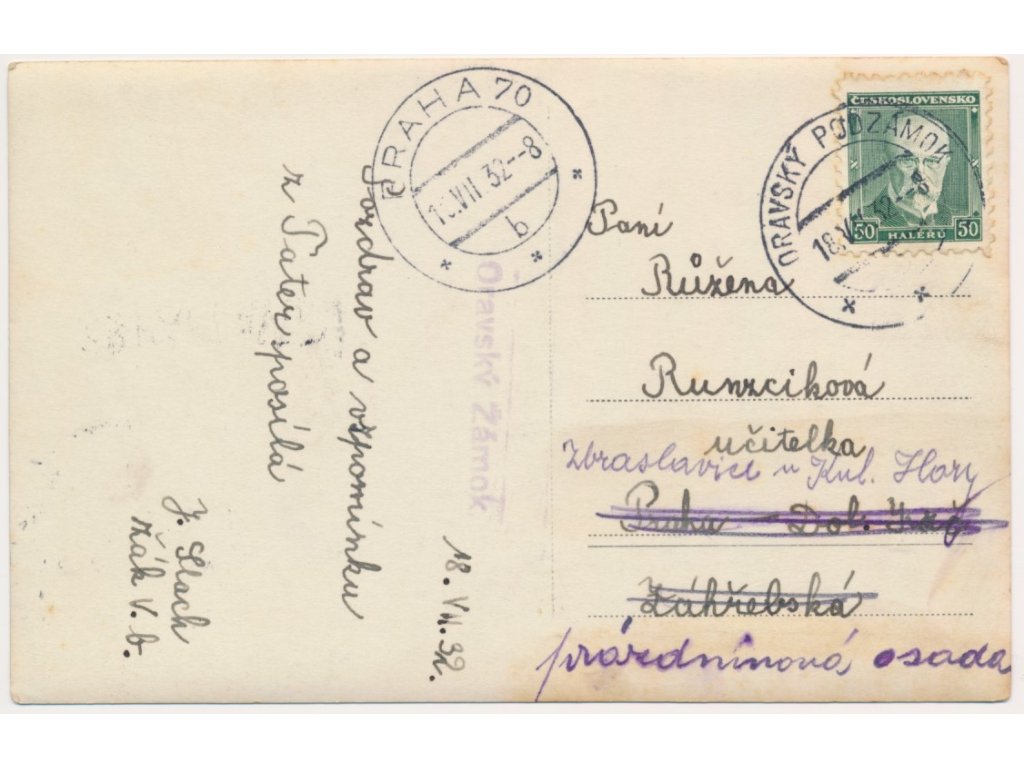 Pozdrav a vzpomínku
z Tater posílá
J. Slach
žák V. b.
18. VII. 32.
PRAHA 70
VII 32--8
b
Oravský Zámok
ČESKOSLOVENSKO
50 HALÉŘŮ 50
ORAVSKÝ PODZÁMOK
18.VII 32-
Paní
Růžena
Runzciková
učitelka
Zbraslavice u Kut. Hory
Praha Dol.
Záhřebská
prázdninová osada